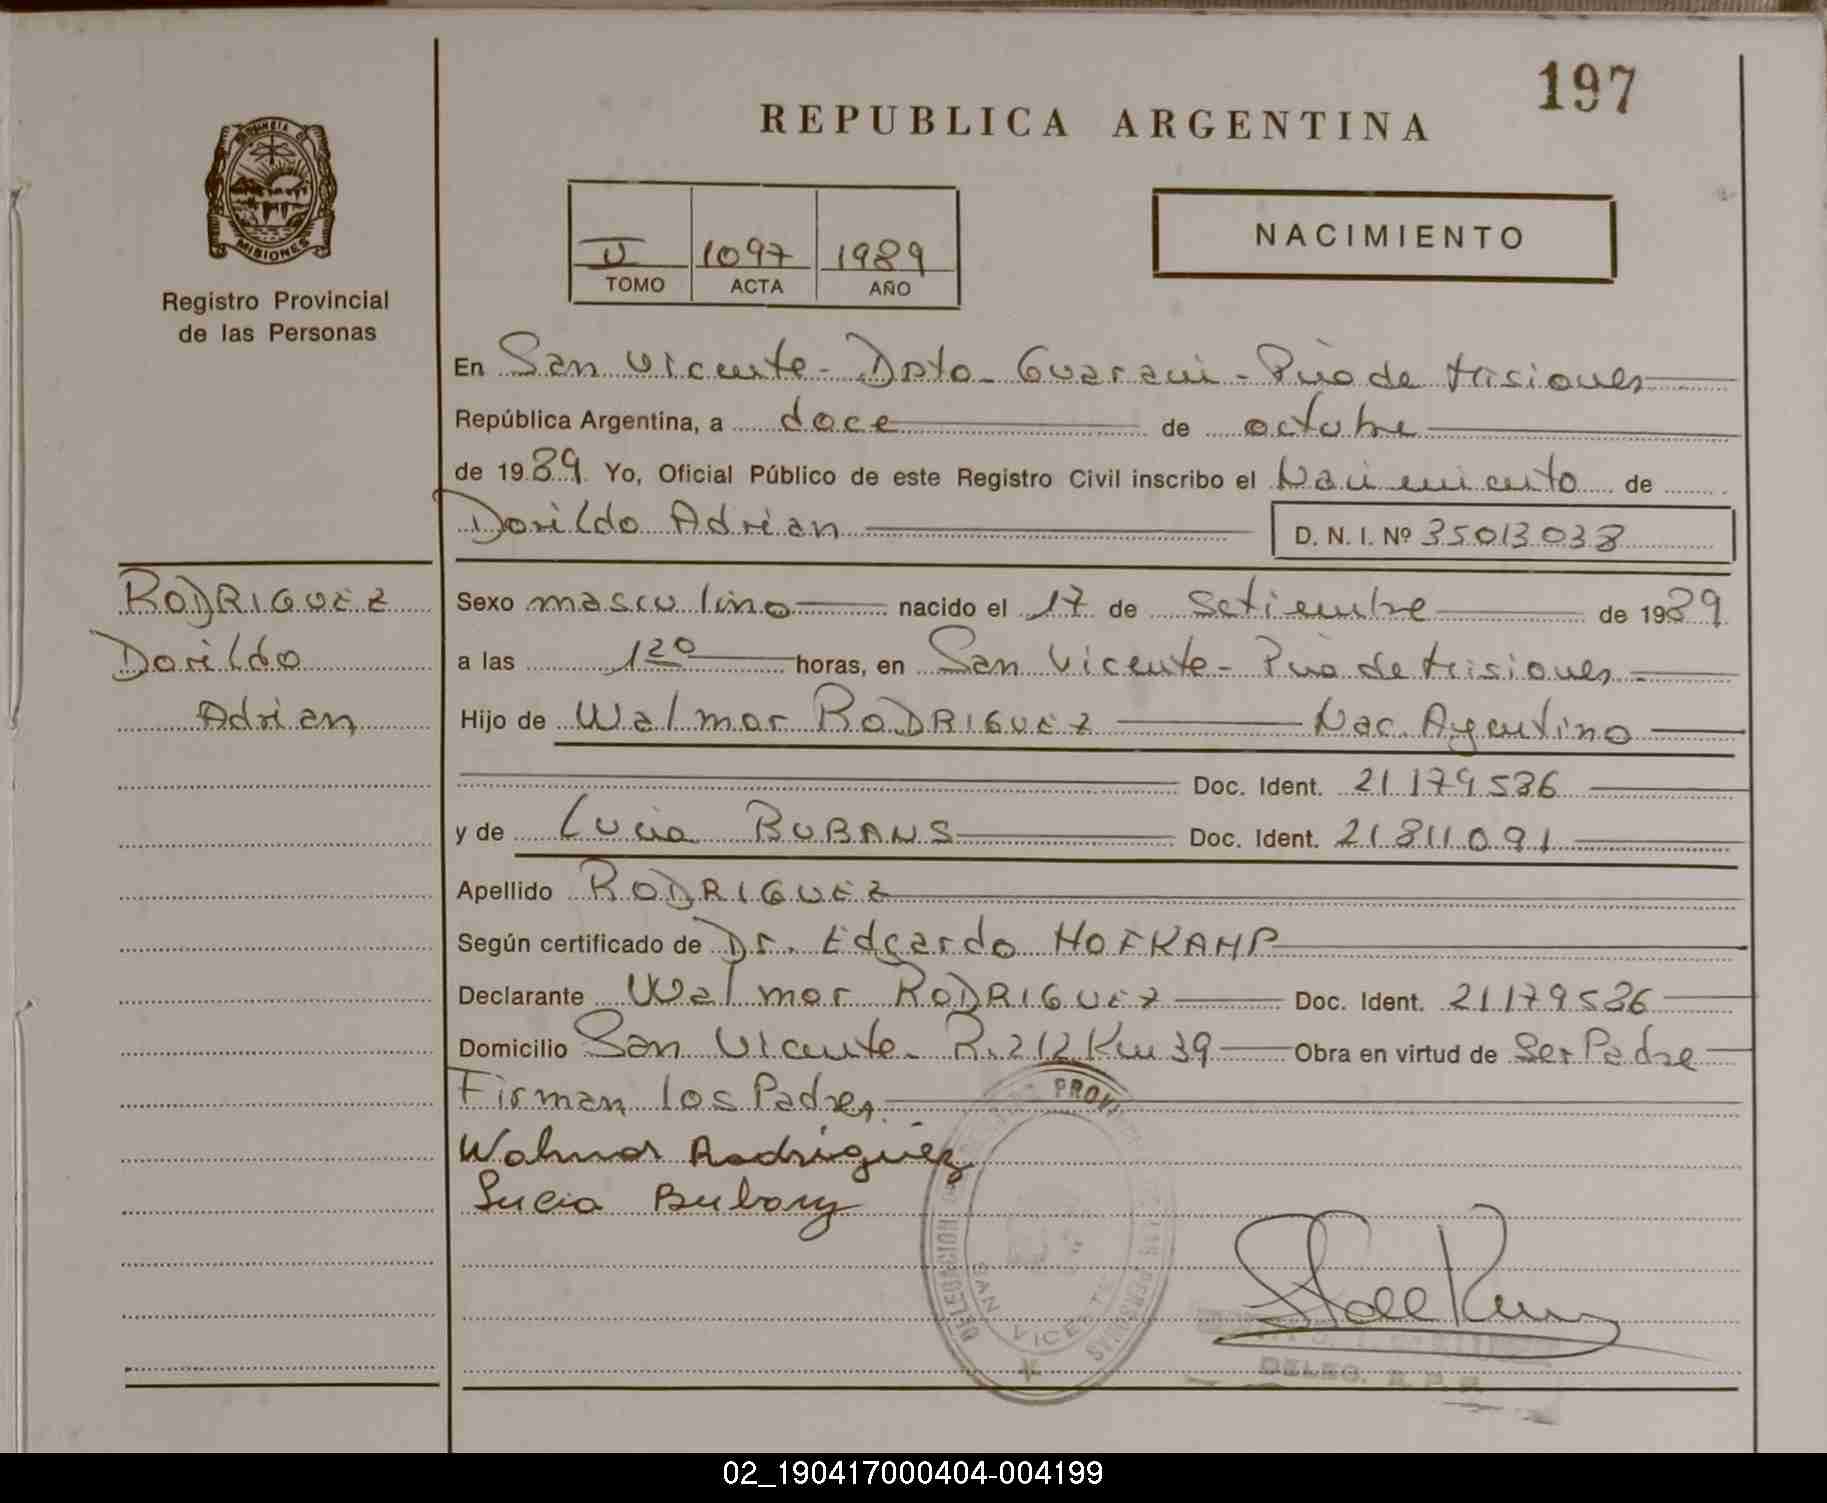 197
REPUBLICA ARGENTINA
MISIONES
Registro Provincial
de las Personas
1097 1989
TOMO ACTA AÑO
NACIMIENTO
En San Vicente - Dpto. Guarani - Pcia de Misiones
República Argentina, a doce de octubre
de 1989. Yo, Oficial Público de este Registro Civil inscribo el Nacimiento de
Dorildo Adrian D. N. I. Nº 35013038
RODRIGUEZ
Dorildo
Adrian
Sexo masculino nacido el 17 de Setiembre de 1989
a las 1 20 horas, en San Vicente - Pcia de Misiones
Hijo de Walmor RODRIGUEZ Nac. Argentino
Doc. Ident. 21179586
y de Lucia BUBANS Doc. Ident. 21811091
Apellido RODRIGUEZ
Según certificado de Dr. Edgardo HOFKAMP
Declarante Walmor RODRIGUEZ Doc. Ident. 21179586
Domicilio San Vicente. R. 212 Km 39 Obra en virtud de Ser Padre
Firman los Padres.
Walmor Rodriguez
Lucia
DELEGACION PROVI PERSONAS
SAN VICENTE
DELEG. R. P. P.
02_190417000404-004199